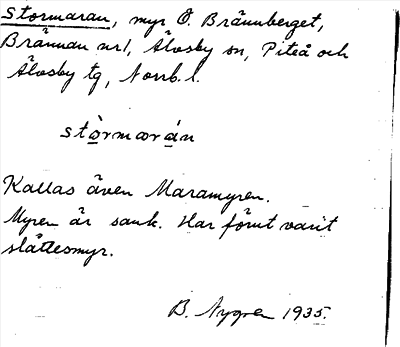 Stormaran, myr Ö. Brännberget,
Brännan nr 1, Älvsby sn, Piteå och
Älvsby tg, Norrb. l.
stòrmarán
Kallas även Maramyren.
Myren är sank. Har förut varit
slåttesmyr.
B. Nygren 1935.